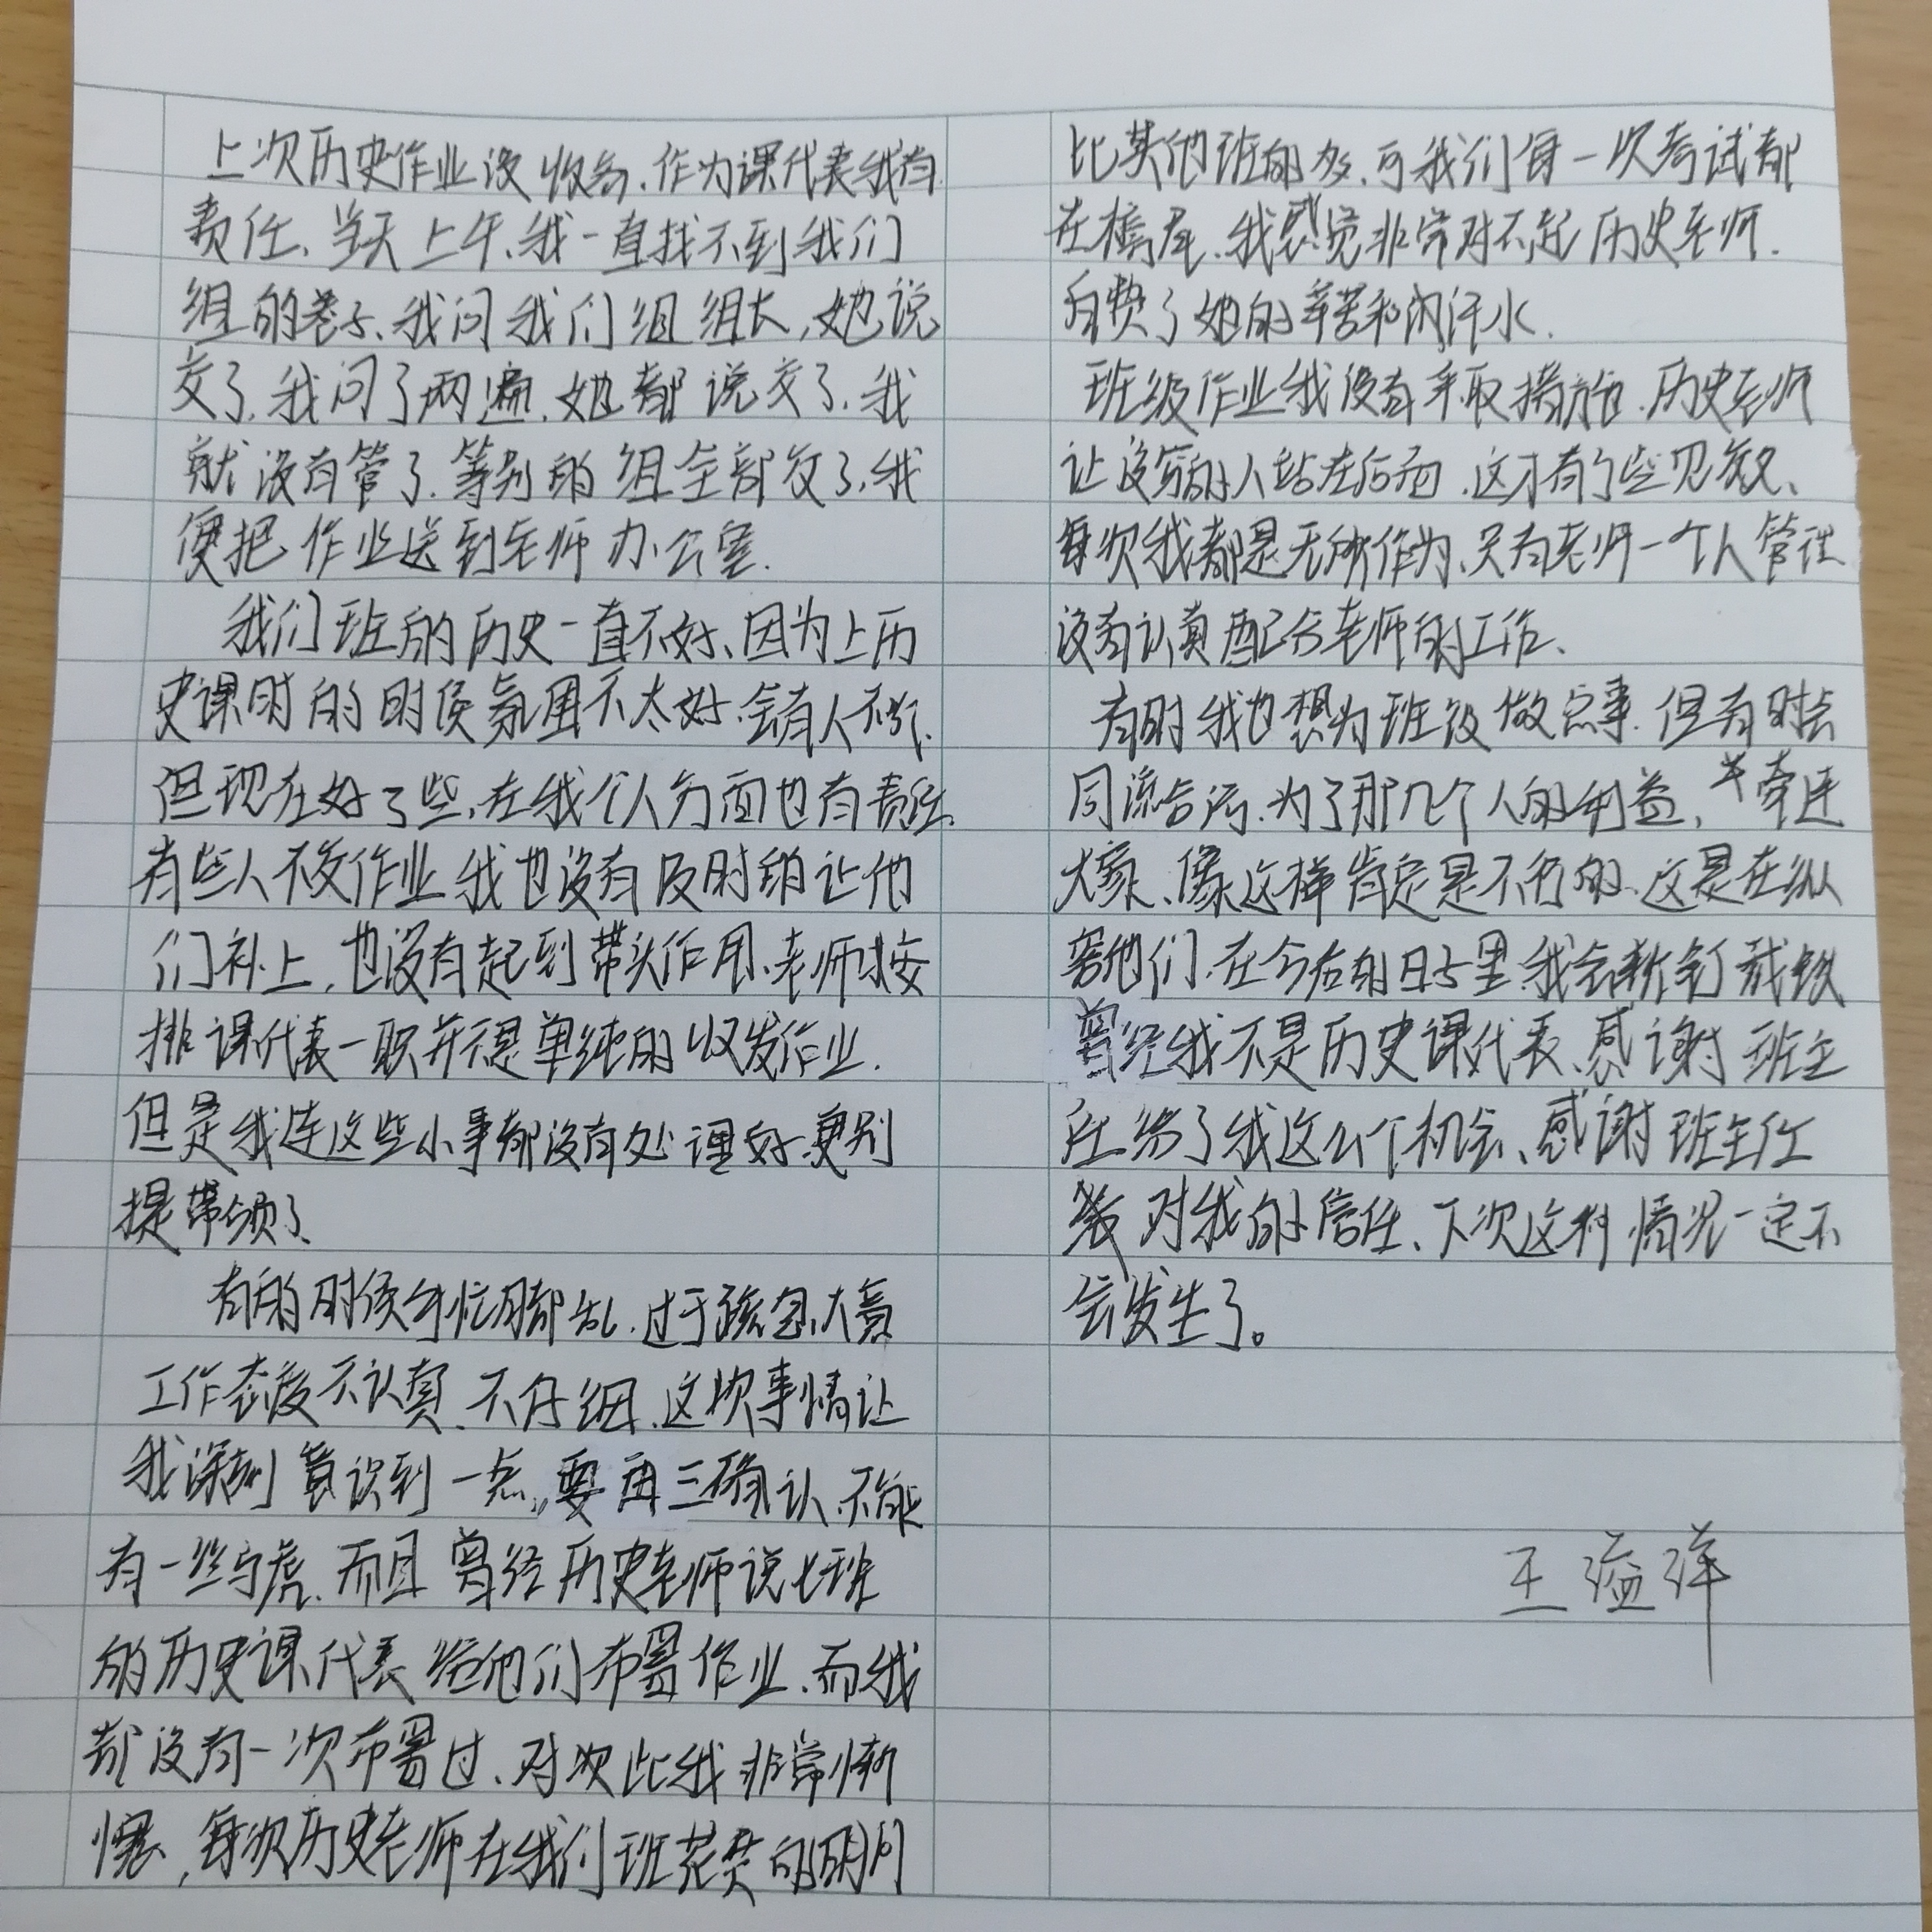 上次历史作业没收齐、作为课代表我有
责任、当天上午、我一直找不到我们
组的卷子、我问我们组组长，她说
交了、我问了两遍、她都说交了、我
就没有管了、等别的组全部交了、我
便把作业送到老师办公室.
我们班的历史一直不好、因为上历
史课时的时侯氛围不太好、会有人不听、
但现在好了些、在我个人方面也有责任、
有些人不交作业 我也没有及时的让他
们补上，也没有起到带头作用、老师按
排课代表一职并不是单纯的收发作业.
但是我连这些小事都没有处理好、更别
提带领了、
有的时侯手忙脚乱、过于着急、大意
工作态度不认真、不仔细、这次事情让
我深刻意识到一点，要再三确认、不能
有一丝马虎、而且曾经历史老师说七班
的历史课代表给他们布置作业、而我
却没有一次布置过、对次比我非常惭
愧，每次历史老师在我们班花费的时间
比其他班的多、可我们每一次考试都
在榜尾、我感觉非常对不起历史老师.
白费了她的辛苦和汗水.
班级作业我没有采取措施、历史老师
让没写的人站在后面、这才有了些见效、
每次我都是无所作为、只有老师一个人管理
没有认真配合老师的工作、
有时我也想为班级做点事、但有时会
同流合污、为了那几个人的利益，牵连
大家、像这样肯定是不行的、这是在纵
容他们、在今后的日子里、我会斩钉截铁
曾经我不是历史课代表、感谢班主
任给了我这么个机会、感谢班主任
对我的信任、下次这种情况一定不
会发生了。
王溢洋